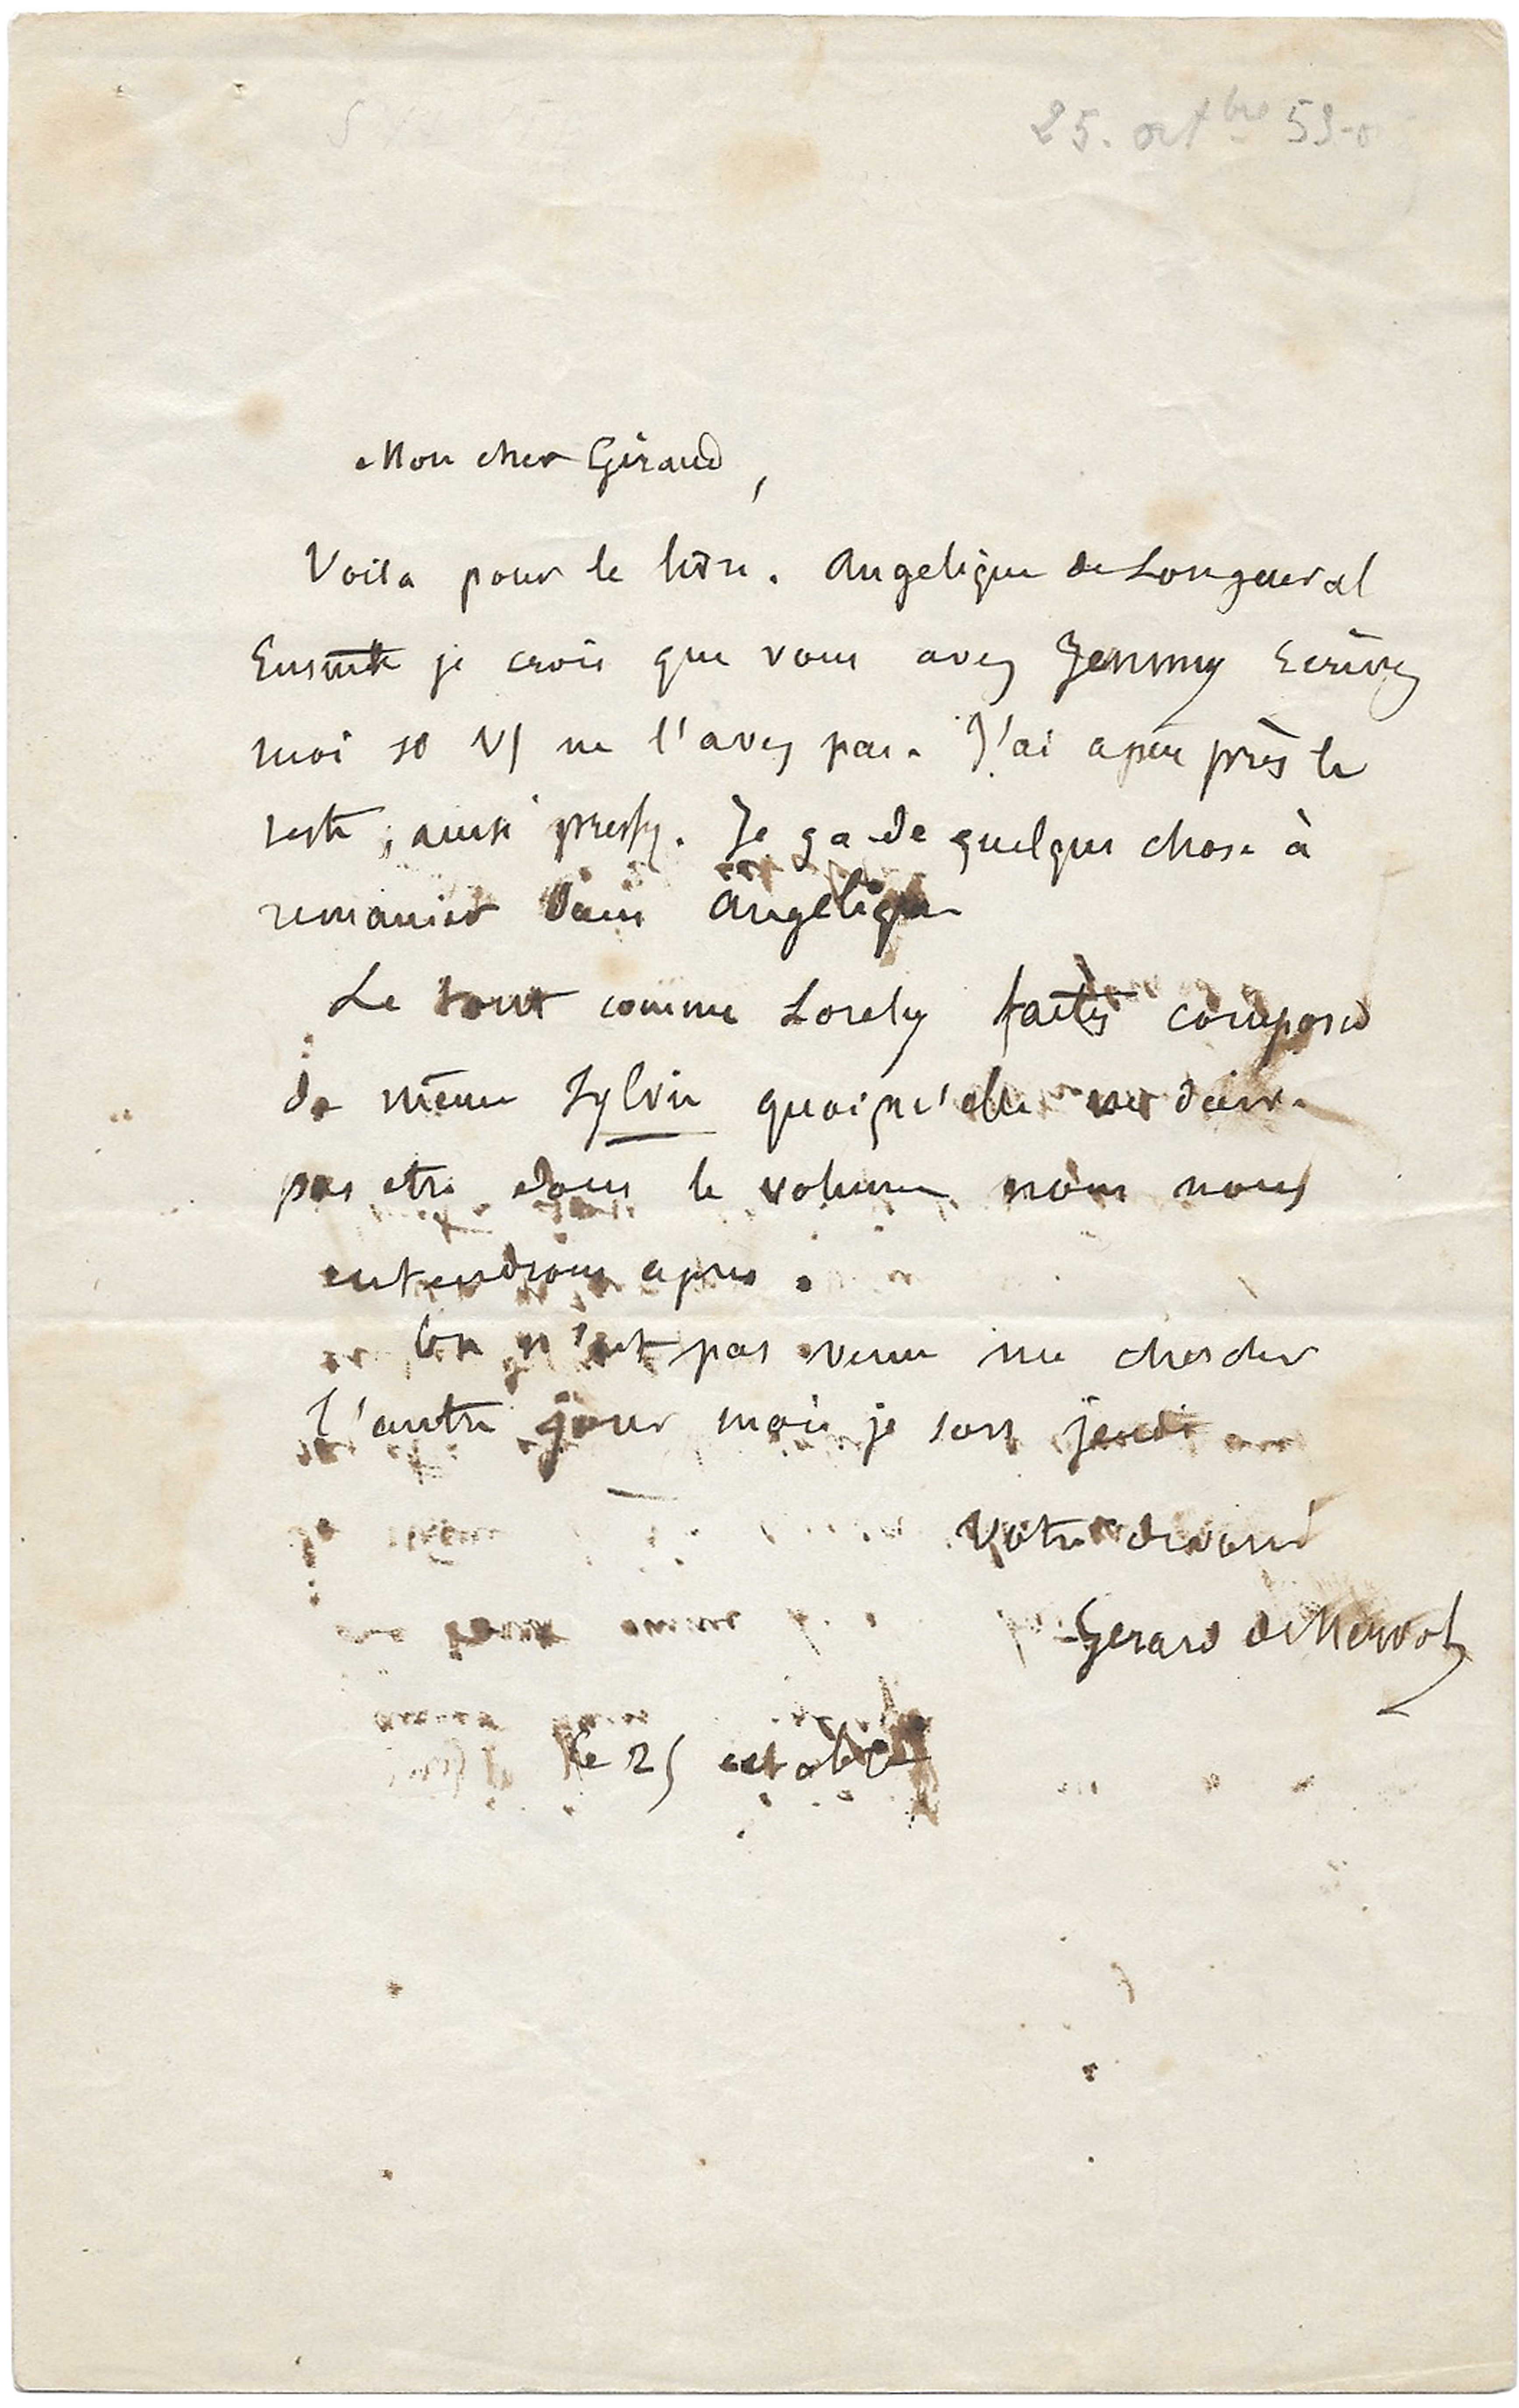 25. oct bre 53
Mon cher Giraud,
Voila pour le livre. Angelique de Longueval
Ensuite je crois que vous avez Jemmy Ecrivez
moi si vs ne l'avez pas. J'ai a peu près le
reste, ainsi pressez. Je ga de quelque chose à
remanier dans Angelique
Le tout comme Lorely faites composer
de même Sylvie quoiqu'elle ne doive
pas etre dans le volume nous nous
entendrons apres.
On n'est pas venu me chercher
l'autre jour mais je sors jeudi
Votre devoué
Gerard de Nerval
le 25 octobre